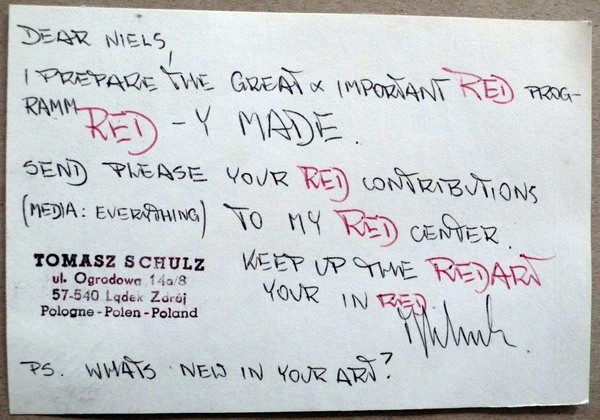 DEAR NIELS,
I PREPARE THE GREAT & IMPORTANT RED PROG-
RAMM RED - Y MADE.
SEND PLEASE YOUR RED CONTRIBUTIONS
(MEDIA: EVERYTHING) TO MY RED CENTER.
KEEP UP THE REDART
YOUR IN RED
TOMASZ SCHULZ
ul. Ogrodowa 14a/8
57-540 Lądek Zdrój
Pologne-Polen-Poland
PS. WHATS NEW IN YOUR ART?